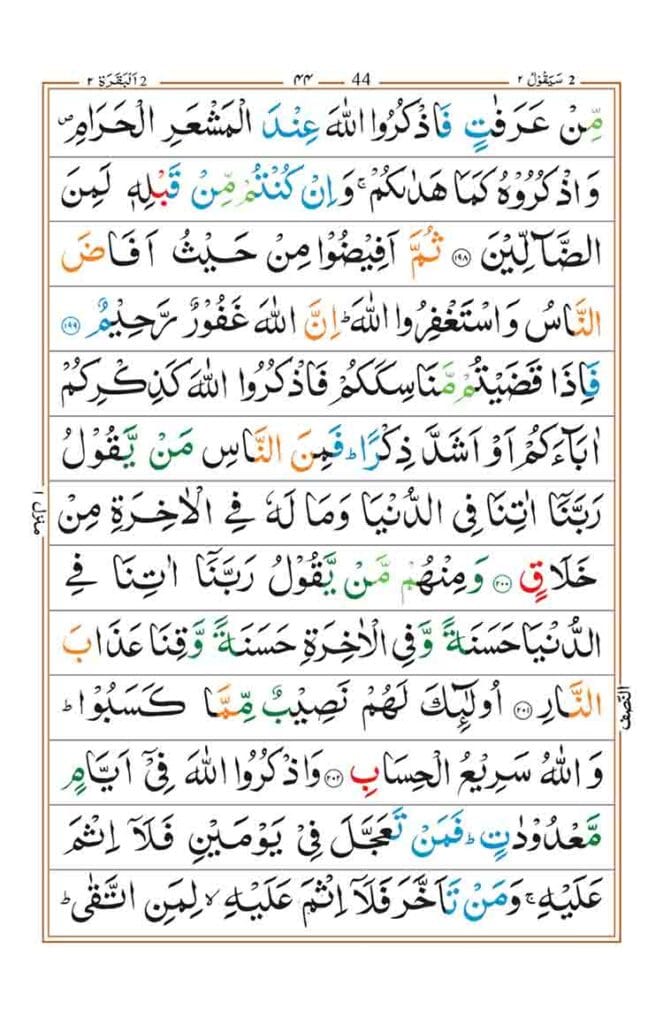 2 سَيَقُوْلُ ٢ ۴۴ 44 2 اَلْبَقَرَة ٢
مِّنْ عَرَفٰتٍ فَاذْكُرُوا اللّٰهَ عِنْدَ الْمَشْعَرِ الْحَرَامِ ۖ
وَاذْكُرُوْهُ كَمَا هَدٰىكُمْ ۚ وَاِنْ كُنْتُمْ مِّنْ قَبْلِهٖ لَمِنَ
الضَّآلِّيْنَ ۝۱۹۸ ثُمَّ اَفِيْضُوْا مِنْ حَيْثُ اَفَاضَ
النَّاسُ وَاسْتَغْفِرُوا اللّٰهَ ؕ اِنَّ اللّٰهَ غَفُوْرٌ رَّحِيْمٌ ۝۱۹۹
فَاِذَا قَضَيْتُمْ مَّنَاسِكَكُمْ فَاذْكُرُوا اللّٰهَ كَذِكْرِكُمْ
اٰبَآءَكُمْ اَوْ اَشَدَّ ذِكْرًا ؕ فَمِنَ النَّاسِ مَنْ يَّقُوْلُ
رَبَّنَآ اٰتِنَا فِى الدُّنْيَا وَمَا لَهٗ فِى الْاٰخِرَةِ مِنْ
خَلَاقٍ ۝۲۰۰ وَمِنْهُمْ مَّنْ يَّقُوْلُ رَبَّنَآ اٰتِنَا فِى
الدُّنْيَا حَسَنَةً وَّفِى الْاٰخِرَةِ حَسَنَةً وَّقِنَا عَذَابَ
النَّارِ ۝۲۰۱ اُولٰٓئِكَ لَهُمْ نَصِيْبٌ مِّمَّا كَسَبُوْا ؕ
وَاللّٰهُ سَرِيْعُ الْحِسَابِ ۝۲۰۲ وَاذْكُرُوا اللّٰهَ فِىْٓ اَيَّامٍ
مَّعْدُوْدٰتٍ ؕ فَمَنْ تَعَجَّلَ فِىْ يَوْمَيْنِ فَلَآ اِثْمَ
عَلَيْهِ ۚ وَمَنْ تَاَخَّرَ فَلَآ اِثْمَ عَلَيْهِ ۙ لِمَنِ اتَّقٰى ؕ
منزل ١
النّصف